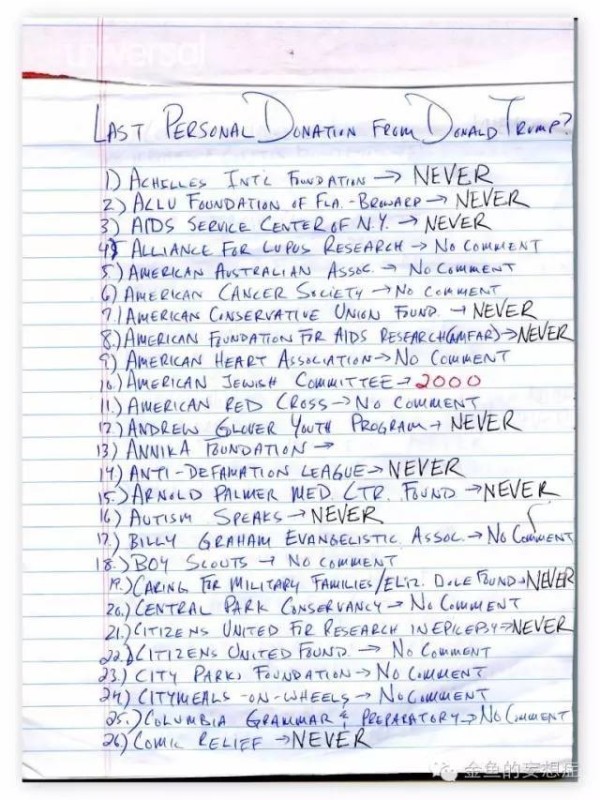 universal
LAST PERSONAL DONATION FROM DONALD TRUMP?
1) ACHILLES INT'L FOUNDATION → NEVER
2) ALLU FOUNDATION OF FLA.-BROWARD → NEVER
3) AIDS SERVICE CENTER OF N.Y. → NEVER
4) ALLIANCE FOR LUPUS RESEARCH → NO COMMENT
5.) AMERICAN AUSTRALIAN ASSOC. → NO COMMENT
6.) AMERICAN CANCER SOCIETY → NO COMMENT
7.) AMERICAN CONSERVATIVE UNION FOUND. → NEVER
8.) AMERICAN FOUNDATION FOR AIDS RESEARCH (AMFAR) → NEVER
9.) AMERICAN HEART ASSOCIATION → NO COMMENT
10.) AMERICAN JEWISH COMMITTEE → 2000
11.) AMERICAN RED CROSS → NO COMMENT
12.) ANDREW GLOVER YOUTH PROGRAM → NEVER
13) ANNIKA FOUNDATION →
14) ANTI-DEFAMATION LEAGUE → NEVER
15.) ARNOLD PALMER MED CTR. FOUND → NEVER
16) AUTISM SPEAKS → NEVER
17.) BILLY GRAHAM EVANGELISTIC ASSOC. → NO COMMENT
18.) BOY SCOUTS → NO COMMENT
19.) CARING FOR MILITARY FAMILIES/ELIZ. DOLE FOUND → NEVER
20.) CENTRAL PARK CONSERVANCY → NO COMMENT
21.) CITIZENS UNITED FOR RESEARCH IN EPILEPSY → NEVER
22.) CITIZENS UNITED FOUND. → NO COMMENT
23.) CITY PARKS FOUNDATION → NO COMMENT
24) CITYMEALS-ON-WHEELS → NO COMMENT
25.) COLUMBIA GRAMMAR & PREPARATORY → NO COMMENT
26) COMIC RELIEF → NEVER
金鱼的妄想症